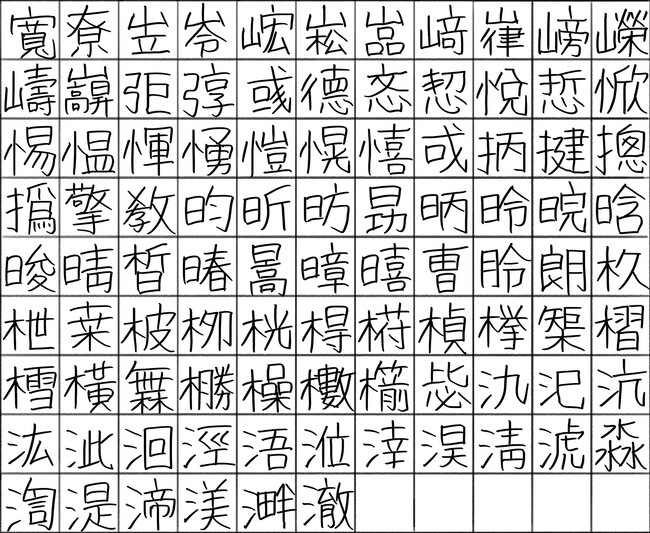 寬尞岦岺峵崧嵓﨑嵂嵭嶸
嶹巐弡弴彧德忞恝悅悊惞
惕愠惲愑愷愰憘戓抦揵摠
撝擎敎昀昕昉昮昞昤晥晗
晙晴晳暙暠暲暿曺朎朗杦
枻桒柀栁桄棏﨓楨﨔榘槢
樰橫橆橳橾櫢櫤毖氿汜沆
汯泚洄涇浯涖涬淏淸淲淼
渹湜渧渼溿澈